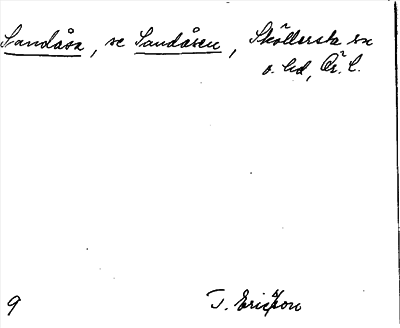 Sandåsa, se Sandåsen, Sköllersta sn
o. hd, Ör. l.
9 T. Ericsson